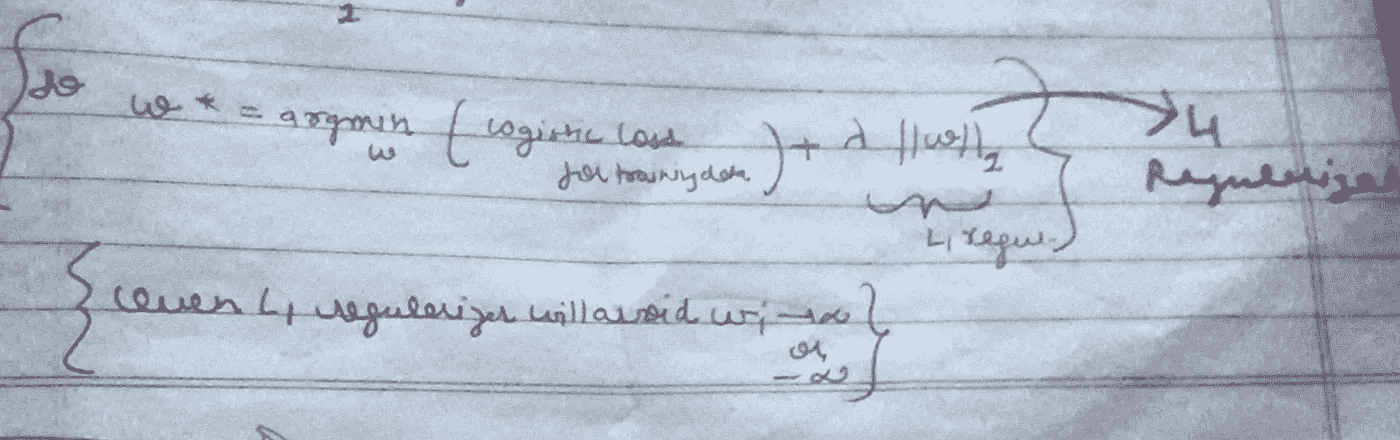 2
so w* = argmin ( logistic loss ) + λ ||w||₂ → L1
w for training data Regulariza
L1 regu.
{ even L1 regularizer will avoid wj → ∞ }
or
- ∞